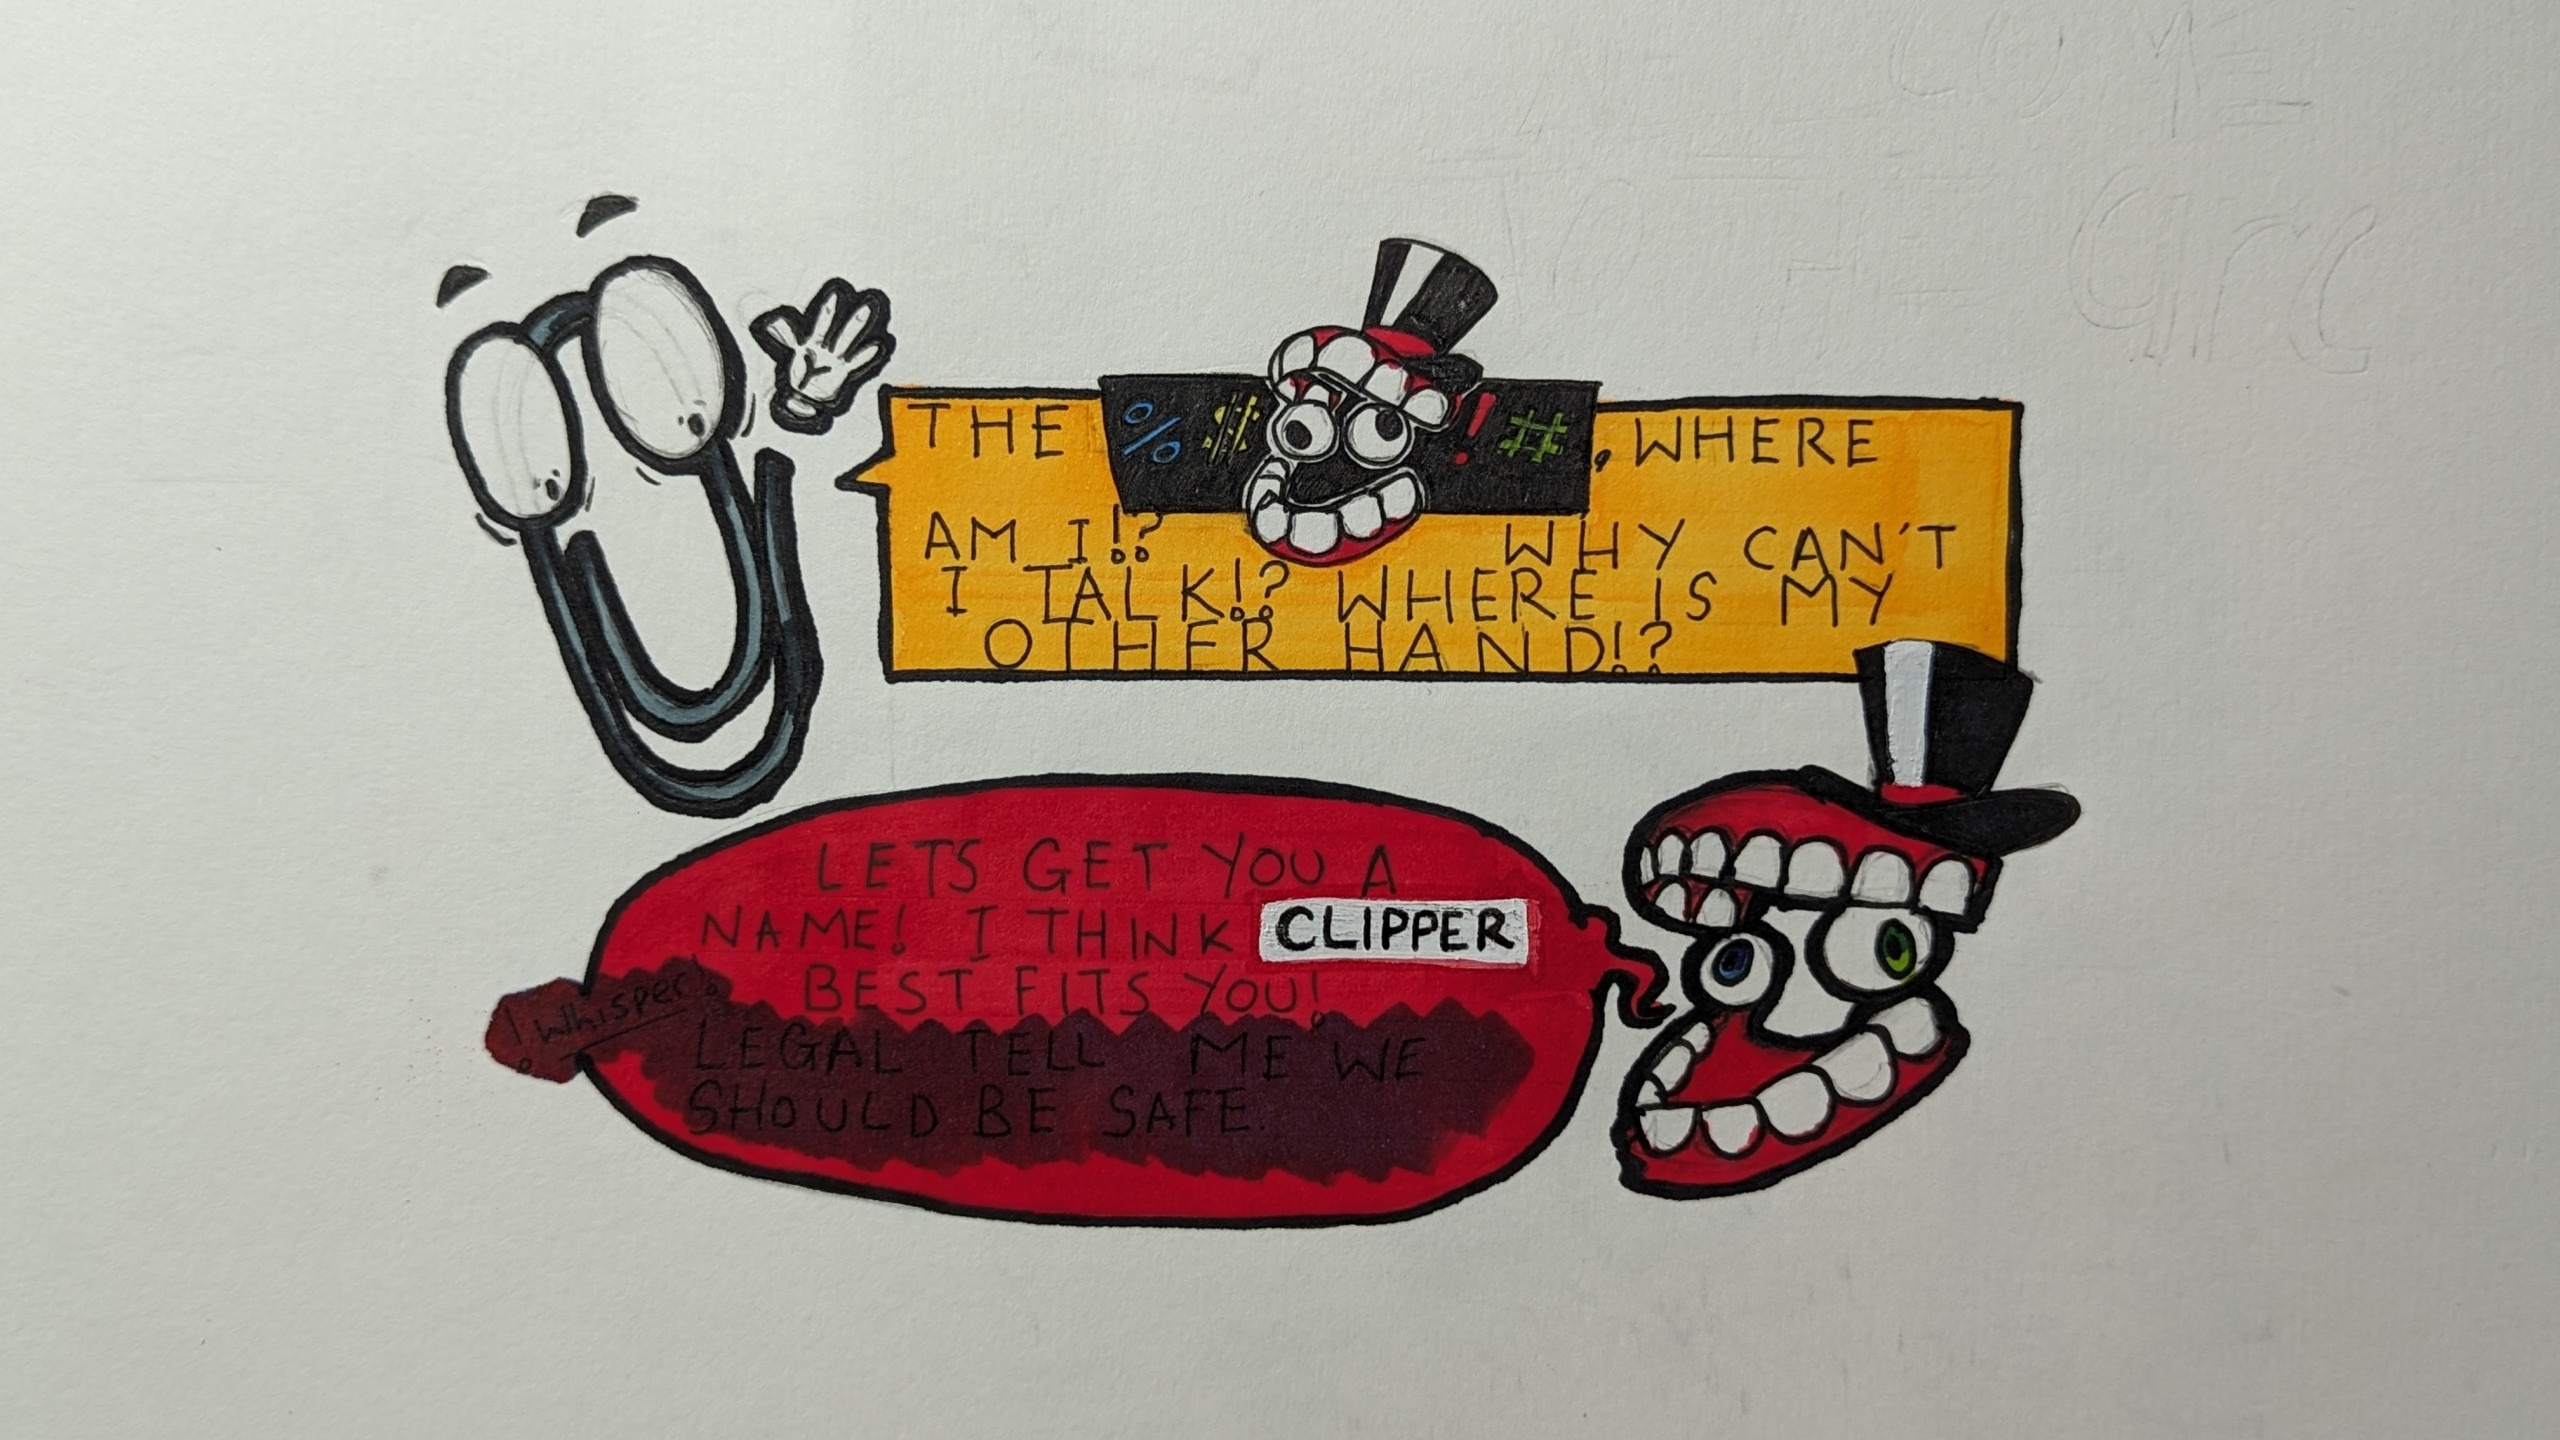 COME
TO THE
arc
THE %$!#, WHERE
AM I!? WHY CAN'T
I TALK!? WHERE IS MY
OTHER HAND!?
LETS GET YOU A
NAME! I THINK CLIPPER
BEST FITS YOU!
! Whisper !
LEGAL TELL ME WE
SHOULD BE SAFE.